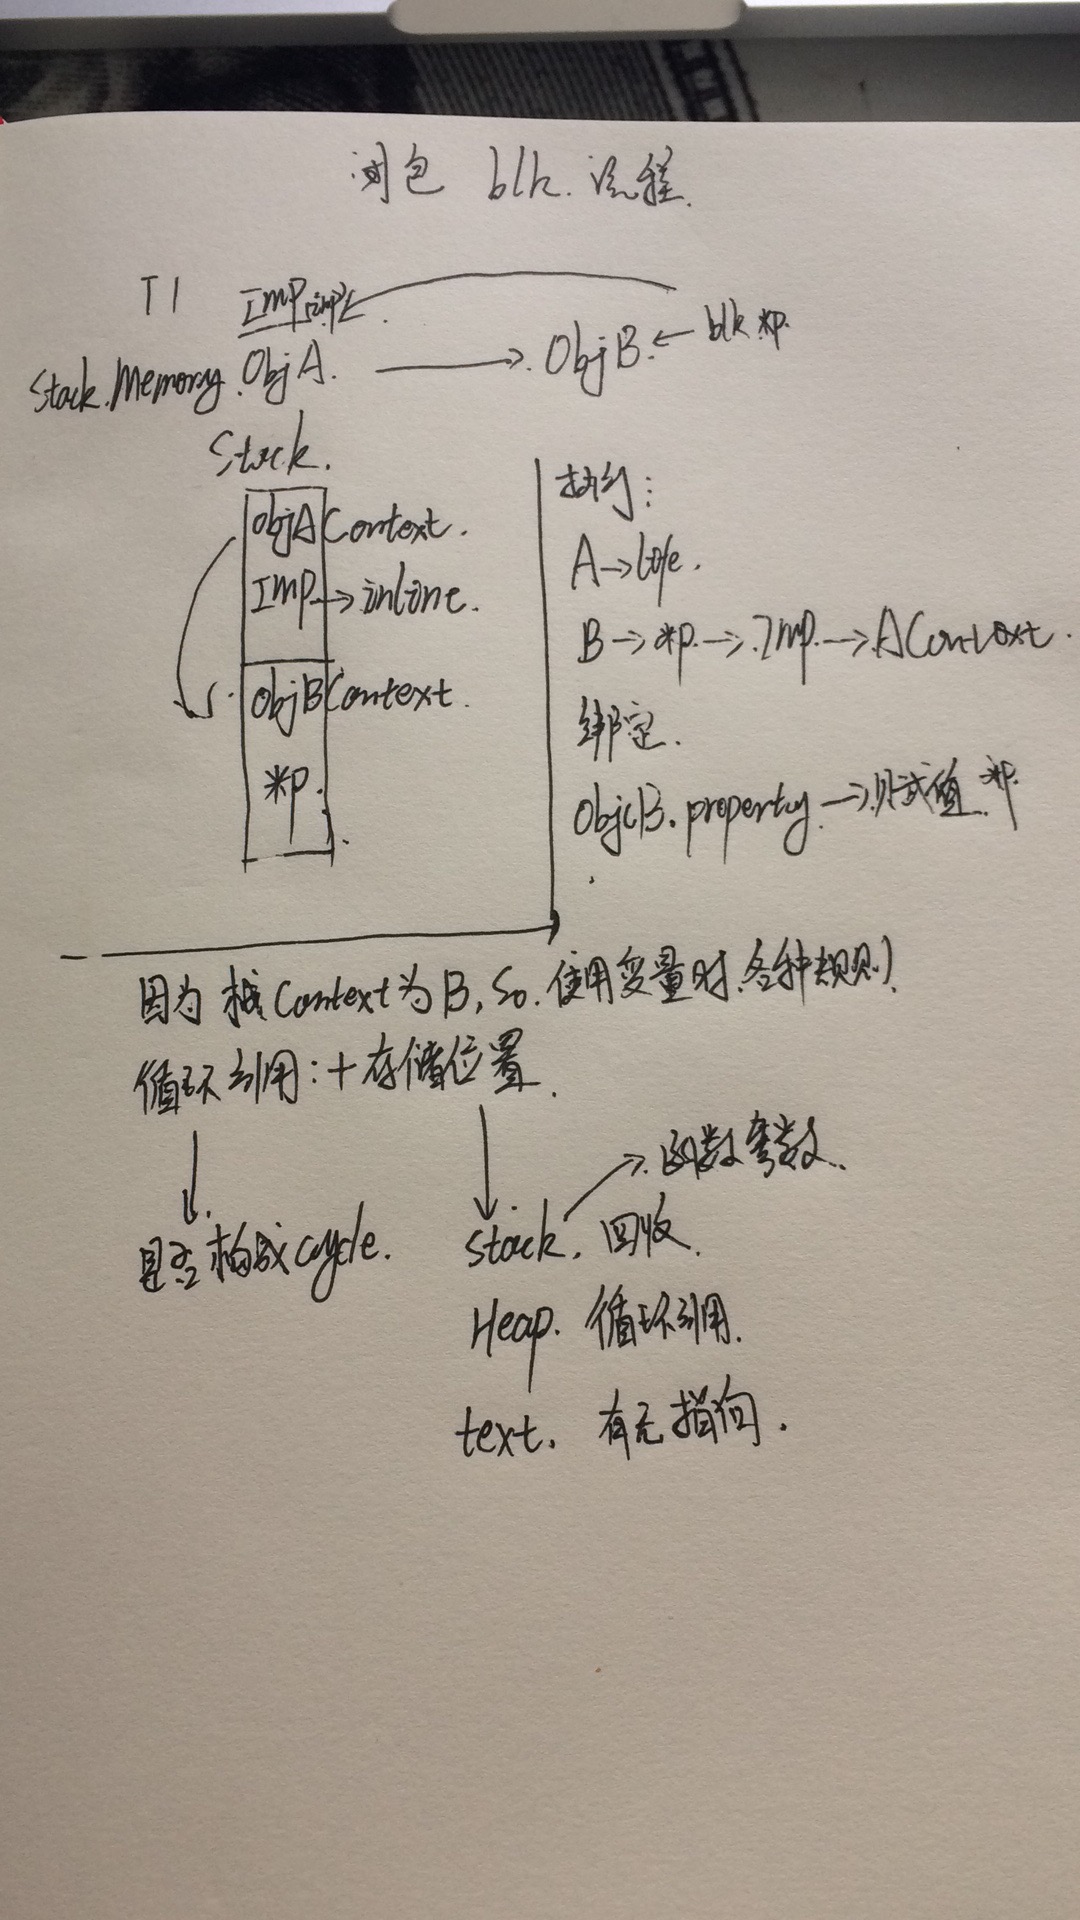 闭包 blk. 流程.
T1 IMP
Stack.Memory. ObjA. → ObjB. ← blk *p.
Stack.
ObjA Context.
IMP → inline.
ObjB Context.
*p.
执行:
A → life.
B → *p. → Imp. → A Context.
绑定.
ObjcB. property. → 赋值 *p.
因为 栈 Context 为 B, So. 使用变量时. 各种规则).
循环引用: + 存储位置.
是否构成 cycle.
→ 函数参数.
Stack. 回收.
Heap. 循环引用.
text. 有无指向.